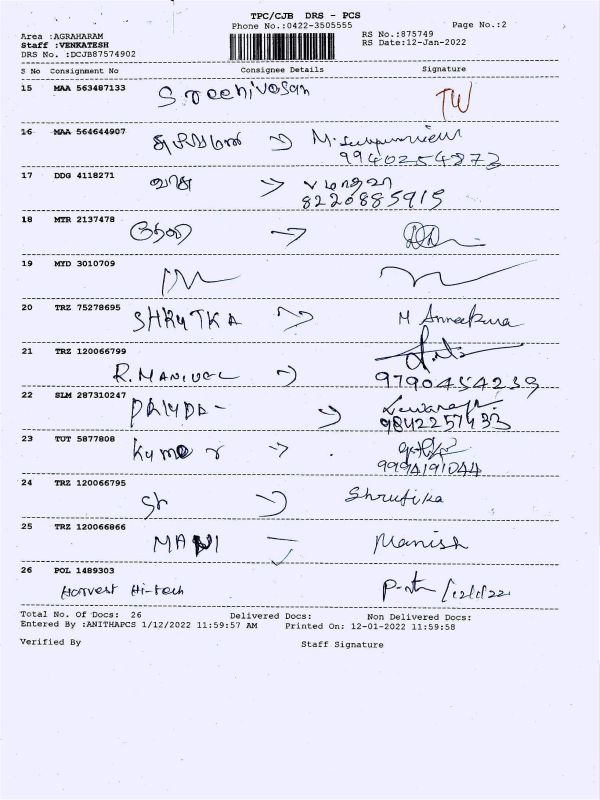 TPC/CJB DRS - PCS
Phone No.:0422-3505555 Page No.:2
Area :AGRAHARAM RS No.:875749
Staff :VENKATESH RS Date:12-Jan-2022
DRS No. :DCJB87574902
S No Consignment No Consignee Details Signature
15 MAA 563487133 Sreenivasan TW
16 MAA 564644907 M.
9940254873
17 DDG 4118271 வாசு
8220885915
18 MTR 2137478
19 MYD 3010709
20 TRZ 75278695 SHRUTKA M
21 TRZ 120066799
R. MANIVEL 9790454239
22 SLM 287310247
9842257433
23 TUT 5877808 Kumar
9994191044
24 TRZ 120066795 Sh Shrutika
25 TRZ 120066866 MANI Manish
26 POL 1489303
Harvest Hi-tech 12/1/22
Total No. Of Docs: 26 Delivered Docs: Non Delivered Docs:
Entered By :ANITHAPCS 1/12/2022 11:59:57 AM Printed On: 12-01-2022 11:59:58
Verified By Staff Signature